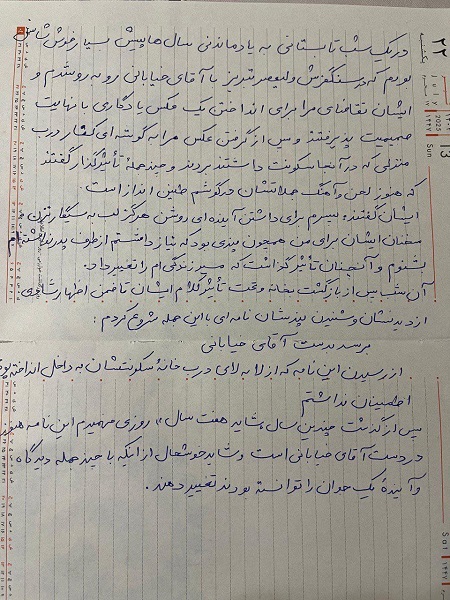 در یک شب تابستانی به یادماندنی سال‌ها پیش بسیار خوش شانس
بودم که در سنگفرش ولیعصر تبریز با آقای خیابانی رو به رو شدم و
ایشان تقاضای مرا برای انداختن یک عکس یادگاری با نهایت
صمیمیت پذیرفتند و پس از گرفتن عکس مرا به گوشه ای کنار درب
منزلی که در آنجا سکونت داشتند بردند و چند جمله تأثیرگذار گفتند
که هنوز لحن و آهنگ جملاتشان در گوشم طنین انداز است.
ایشان گفتند، پسرم برای داشتن آینده ای روشن هرگز لب به سیگار نزن و
سخنان ایشان برای من همچون پندی بود که نیاز داشتم از طرف پدر نداشته ام
بشنوم و آنچنان تأثیر گذاشت که مسیر زندگی ام را تغییر داد.
آن شب پس از بازگشت به خانه و تحت تأثیر کلام ایشان تا ضمن اظهار شادی
از دیدنشان و شنیدن پندشان نامه ای با این جمله شروع کردم :
برسد بدست آقای خیابانی
از رسیدن این نامه که از لا به لای درب خانهٔ سکونتشان به داخل انداخته بودم
اطمینان نداشتم
پس از گذشت چندین سال، شاید هفت سال، روزی فهمیدم این نامه هنوز
در دست آقای خیابانی است و شاید خوشحال از اینکه با چند جمله دیدگاه
و آیندهٔ یک جوان را توانسته بودند تغییر دهند.
۲۲
یکشنبه
2025
۱۴۴۷
13
Sun
Sat
۱۴۴۷